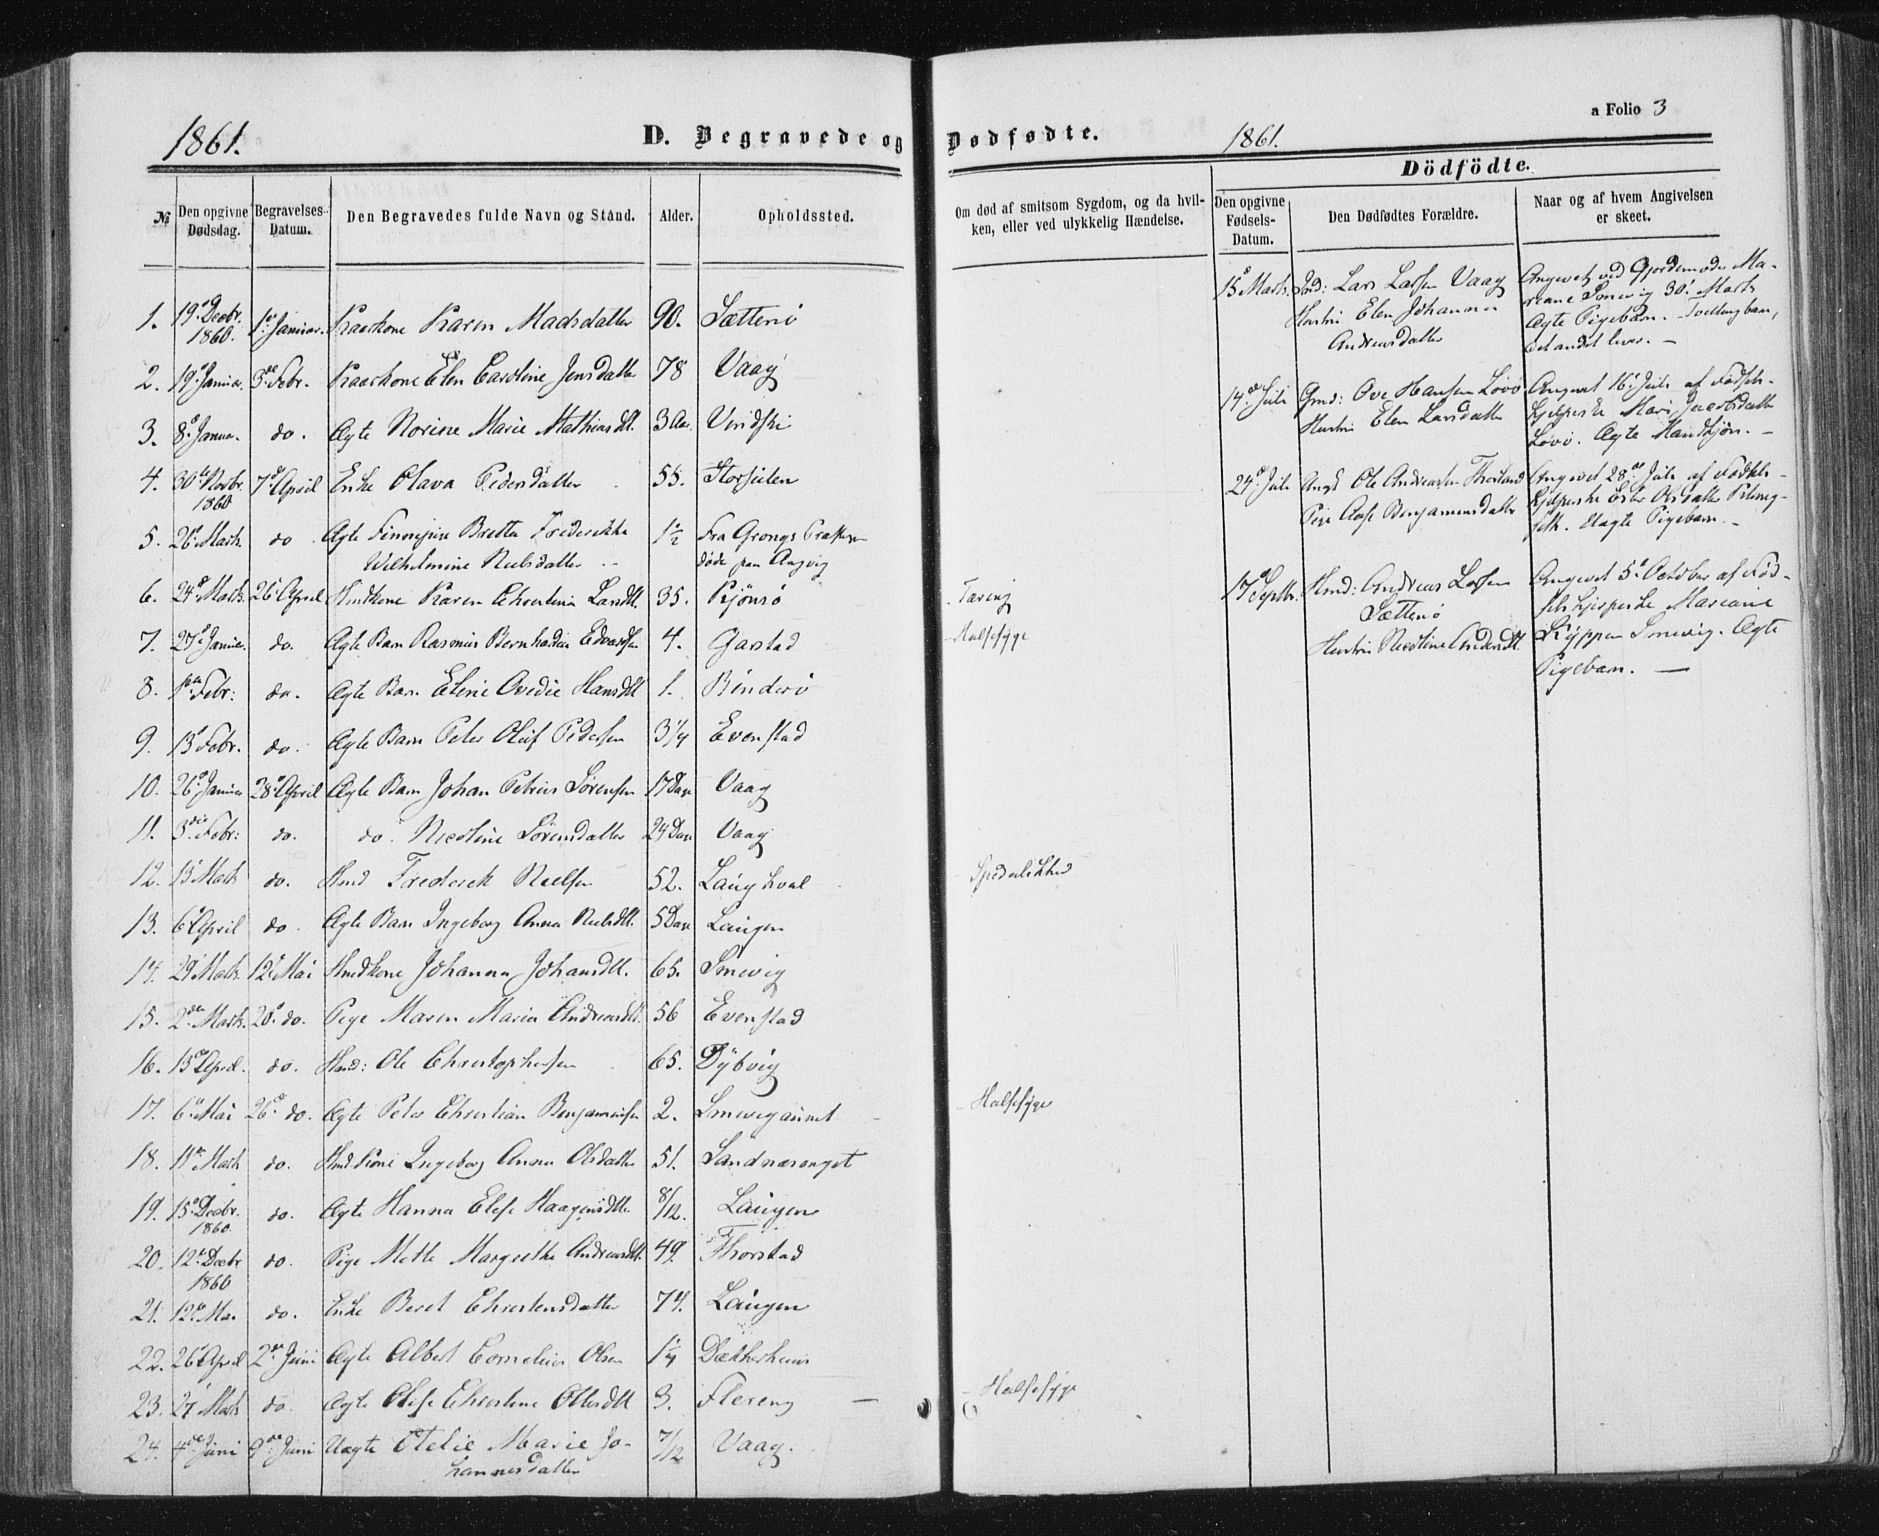 1861.
D. Begravede og Dødfødte.
1861.
a Folio 3
№
Den opgivne Dødsdag.
Begravelses-Datum.
Den Begravedes fulde Navn og Stand.
Alder.
Opholdssted.
Om død af smitsom Sygdom, og da hvil-
ken, eller ved ulykkelig Hændelse.
Dödfödte.
Den opgivne Fødsels-Datum.
Den Dødfødtes Forældre.
Naar og af hvem Angivelsen er skeet.
1. 19de Decbr. 1860. 1ste Januar. Kaarkone Karen Madsdatter 90. Sætterø
2. 19de Januar 3die Febr. Kaarkone Elen Caroline Jensdatter 78 Vaag
3. 8de Januar do. Ægte Norine Marie Mathiasdtt. 3 Aar
4. 30te Novbr. 1860 7de April Enke Olava Pedersdatter 55. Storseilen
5. 26de Marts do. Ægte Bretta Frederikke 1½ Fra Grongs
Wilhelmine Nielsdatter døde paa
6. 24de Marts 26de April Huskone Karen Christine Larsdtt. 35. Tæring
7. 27de Januar do. Ægte Barn Rasmus Bernhardin Edvardsen 4. Garstad Halssyge
8. 1ste Febr: do. Ægte Barn Eline Ovedie Hansdtt 1. Binderø
9. 13de Febr. do. Ægte Barn Peter Oluf Pedersen 3¼ Evenstad
10. 26de Januar 28de April Ægte Barn Johan Petrus Sørensen 17 Dage Vaag
11. 3die Febr: do. do. Nicoline Sørensdatter 24 Dage Vaag
12. 13de Marts do. Hmd Frederik Nielsen 52. Spedalskhed
13. 6te April do. Ægte Barn Ingeborg Anna Nielsdtt. 5 Dage Laugen
14. 29de Marts 12te Mai Hmdkone Johanna Johansdtt. 65. Smevig
15. 2den Marts. 20de do. Pige Maren Maria Andreasdtt. 56 Evenstad
16. 15de April. do. Hmd: Ole Christophersen 65. Dybvig
17. 6te Mai 26de do. Ægte Peter Christian Benjaminsen 2. Halssyge
18. 11te Marts do. Hmdkone Ingeborg Anna Olsdatter 51. Sandnæsenget
19. 15de Decbr. 1860 do. Ægte Hanna Elise Haagensdtt 8/12. Laugen
20. 12te Decbr 1860 do. Pige Mette Margrethe Andreasdtt. 49. Thorstad
21. 12te Mai do. Enke Beret Christensdatter 74. Laugen
22. 26de April 2den Juni Ægte Albert Cornelius Olsen 1¼ Dekkerhuus
23. 27de Marts do. Ægte Olise Christine Ottesdtt 3. Flereng Halssyge
24. 4de Juni 9de Juni Uægte Otelie Marie Jo-
hannesdatter 7/12 Vaag.
15de Marts. Ind: Lars Larsen Vaag
Hustru Elen Johanna
Andreasdatter
Angivet ved Gjordemoder Ma-
riane Smevig 30te Marts
Ægte Pigebarn. Tvillingbarn,
det andet lever. —
14de Juli Gmd: Ove Hansen Løvø
Hustru Elen Larsdatter
Angivet 16de Juli af Fødsels-
hjelperske Mari Jacobsdatter
Løvø. Ægte Mandkjøn. —
24de Juli Ungk Ole Andreassen Thorstad
Pige Aase Benjaminsdatter
Angivet 28de Juli af Fødsels-
hjelperske Ester Olsdatter
Uægte Pigebarn. —
17de Septbr. Hmd: Andreas Larsen
Sætterø
Hustru Nicoline Andersdtt.
Angivet 5te October af Fød-
selshjelperske Mariane
Smevig. Ægte
Pigebarn. —